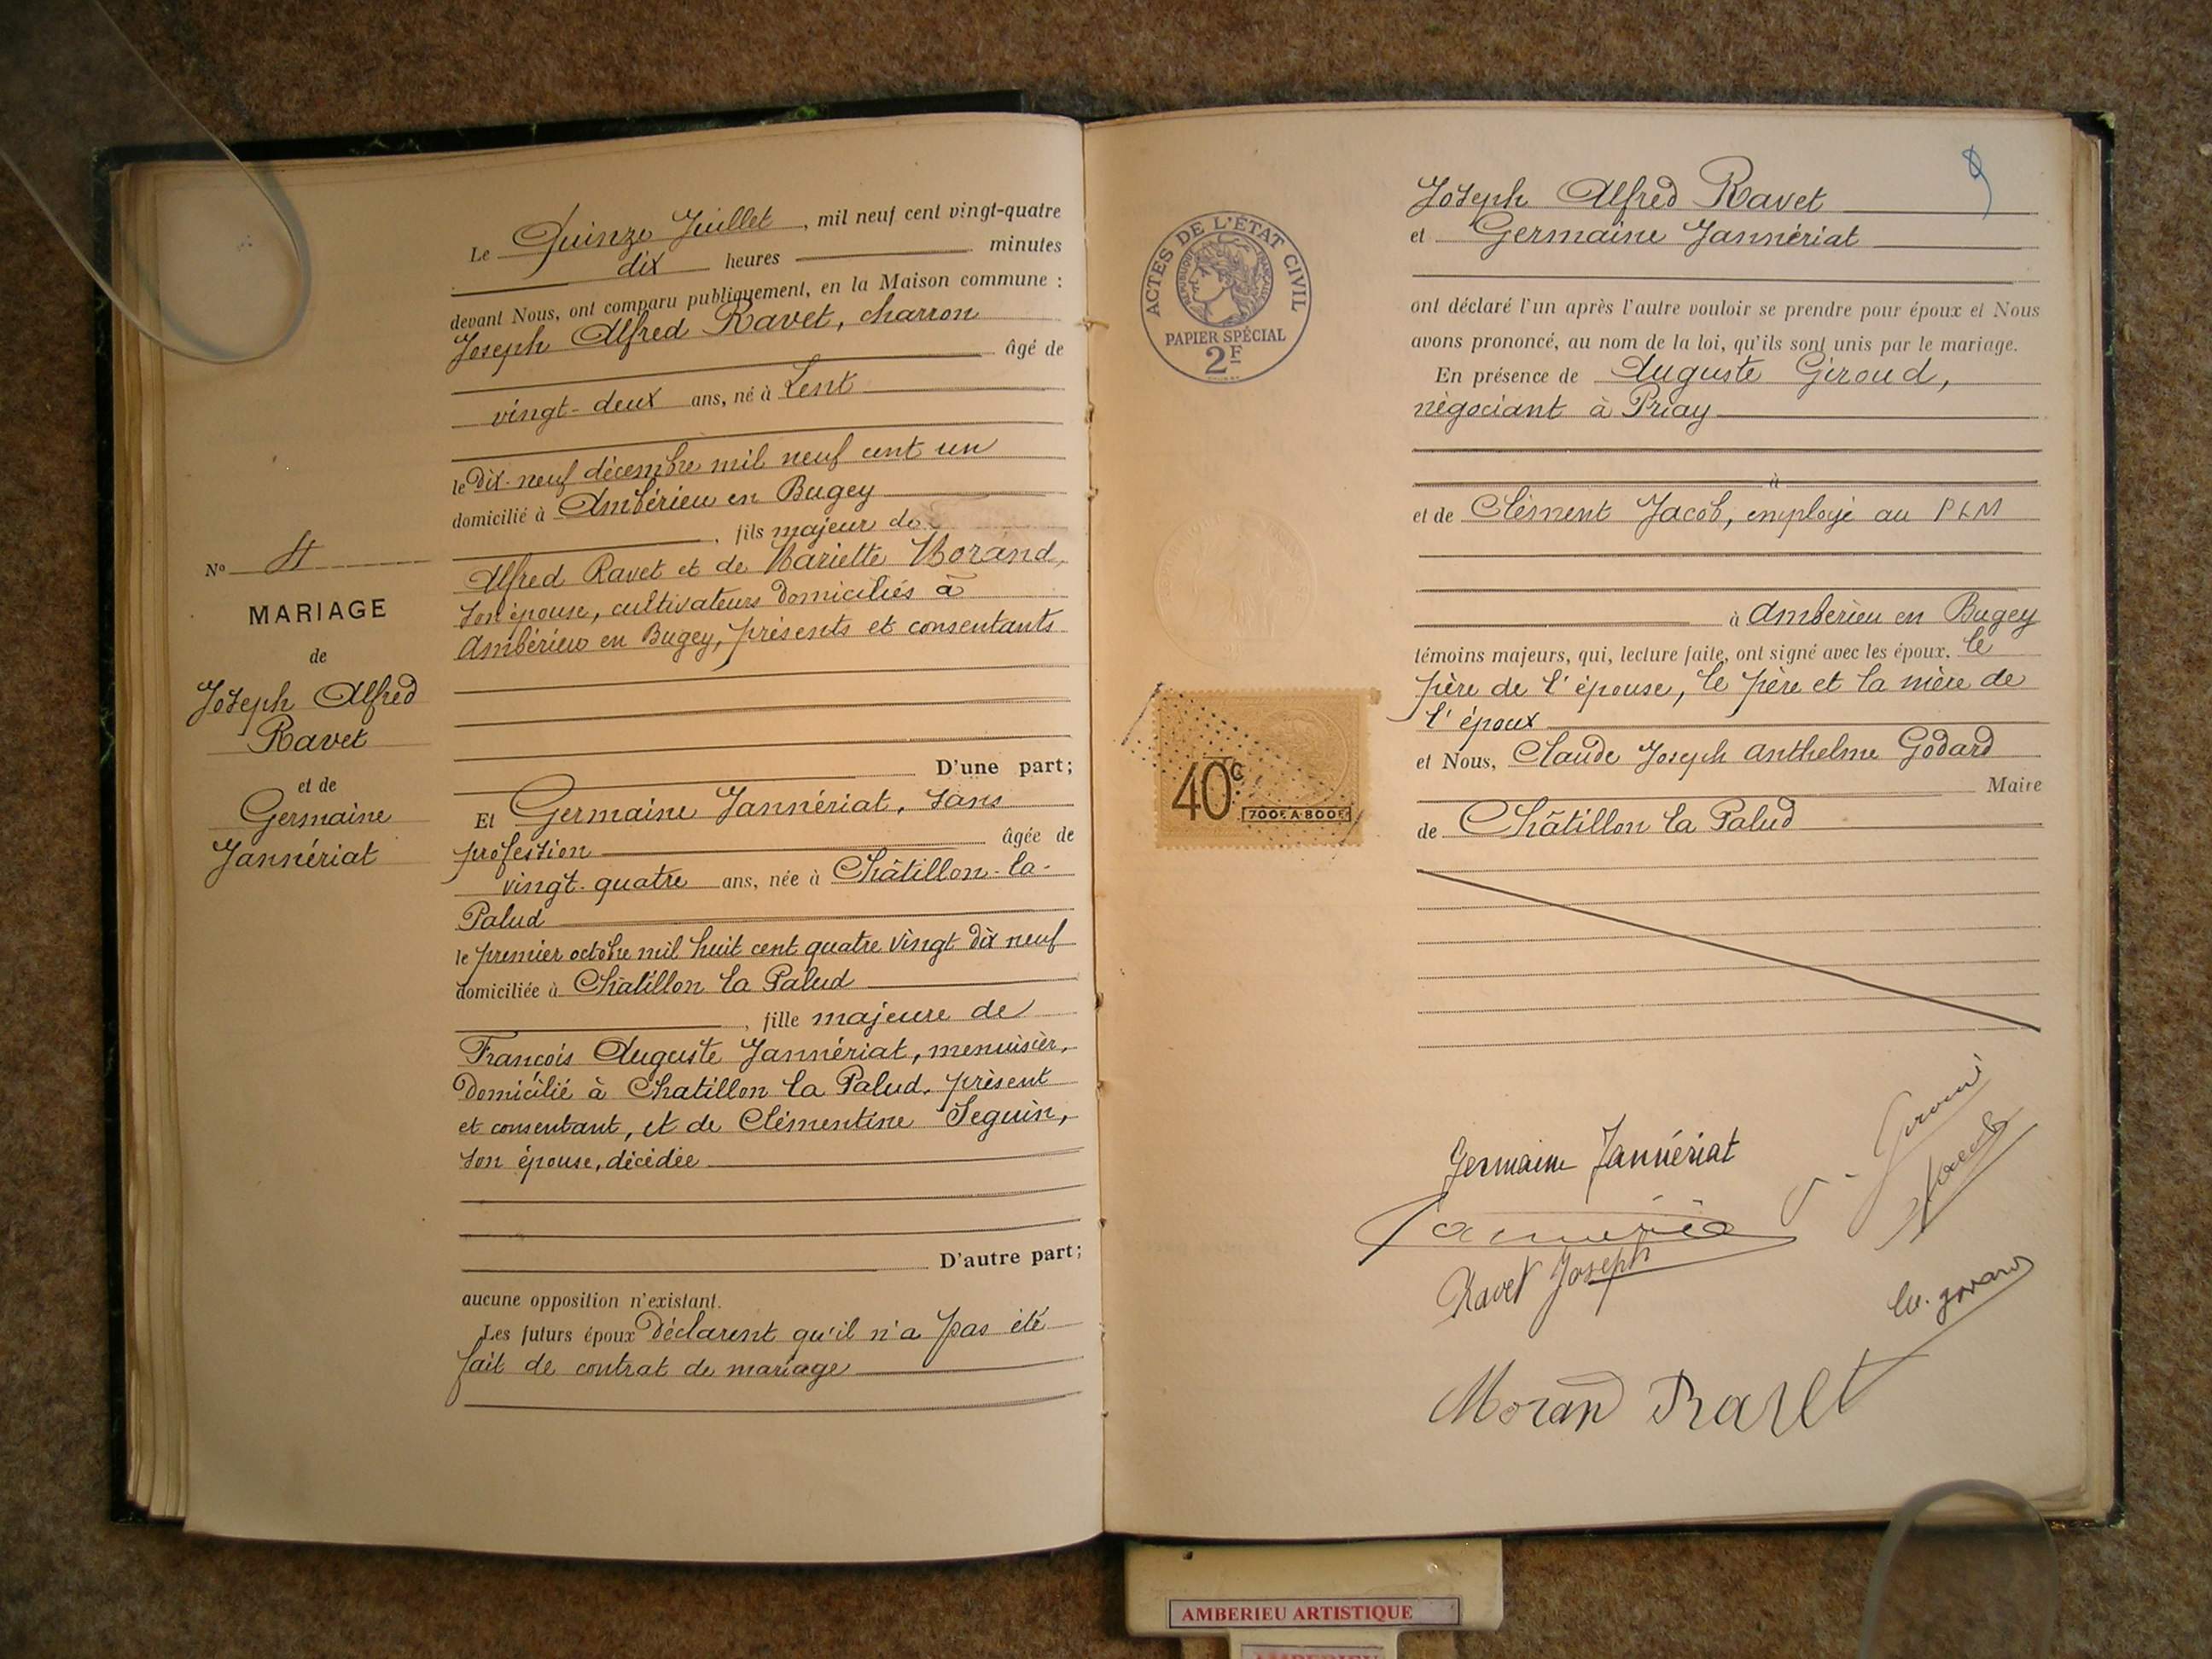 Le Quinze Juillet, mil neuf cent vingt-quatre
dix heures minutes
devant Nous, ont comparu publiquement, en la Maison commune :
Joseph Alfred Ravet, charron
âgé de
vingt-deux ans, né à Lent
le dix-neuf décembre mil neuf cent un
domicilié à Ambérieu en Bugey
, fils majeur de
Alfred Ravet et de Mariette Morand,
son épouse, cultivateurs domiciliés à
Ambérieu en Bugey, présents et consentants
D'une part;
Et Germaine Jannériat, sans
profession âgée de
vingt-quatre ans, née à Châtillon-la-
Palud
le premier octobre mil huit cent quatre vingt dix neuf
domiciliée à Châtillon la Palud
, fille majeure de
François Auguste Jannériat, menuisier,
domicilié à Chatillon la Palud, présent
et consentant, et de Clémentine Seguin,
son épouse, décédée
D'autre part;
aucune opposition n'existant.
Les futurs époux déclarent qu'il n'a pas été
fait de contrat de mariage
No 4
MARIAGE
de
Joseph Alfred
Ravet
et de
Germaine
Jannériat
ACTES DE L'ÉTAT CIVIL
RÉPUBLIQUE FRANÇAISE
PAPIER SPÉCIAL
2F
40c
700F A 800F
9
Joseph Alfred Ravet
et Germaine Jannériat
ont déclaré l'un après l'autre vouloir se prendre pour époux et Nous
avons prononcé, au nom de la loi, qu'ils sont unis par le mariage.
En présence de Auguste Giroud,
négociant à Priay
à
et de Clément Jacob, employé au PLM
à Ambérieu en Bugey
témoins majeurs, qui, lecture faite, ont signé avec les époux, le
père de l'épouse, le père et la mère de
l'époux
et Nous, Claude Joseph Anthelme Godard
Maire
de Châtillon la Palud
Germaine Jannériat
Ravet Joseph
Jacob
Moran Ravet
AMBERIEU ARTISTIQUE
AMBERIEU